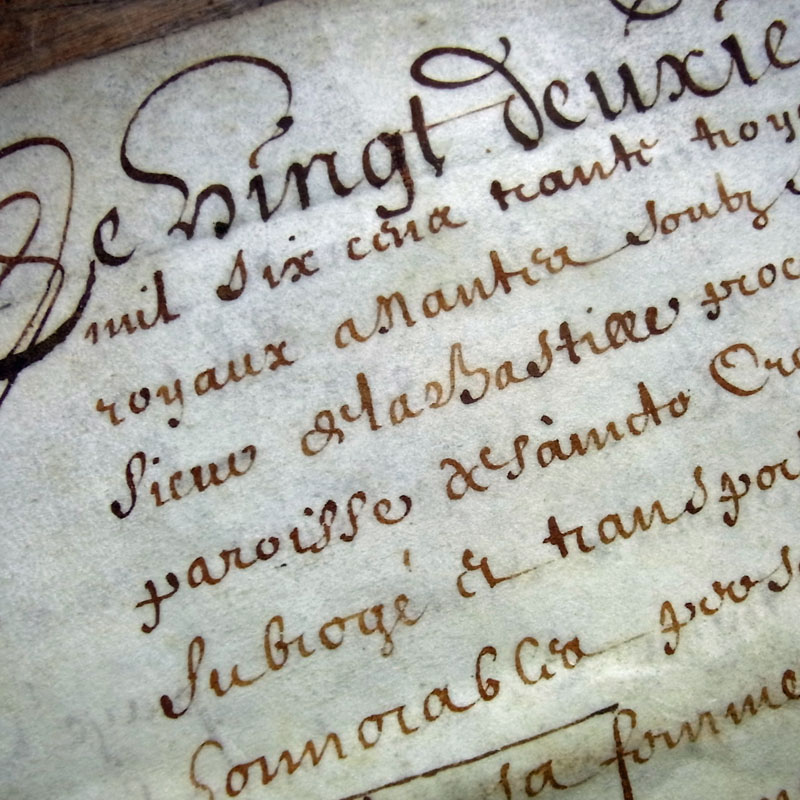 Le vingt deuxie
mil six cens trante troys
royaux a Nantes soubz s
sieur de la Bastille proc
paroisse de saincte Cro
subrogé et transpor
honnorables pers
sa somme